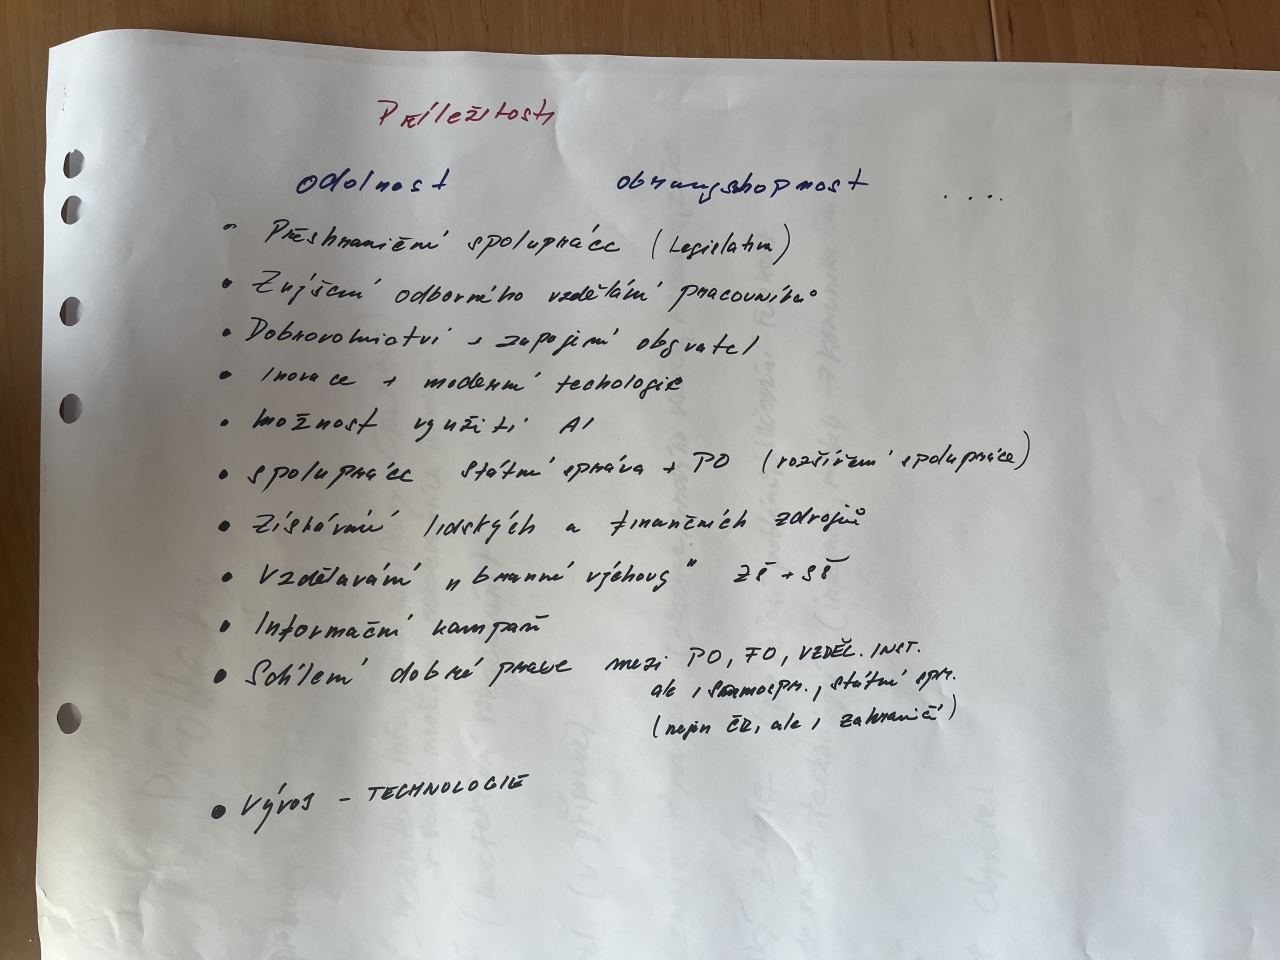 Příležitosti
odolnost obranyschopnost ....
- Přeshraniční spolupráce (Legislativa)
• Zvýšení odborného vzdělání pracovníků
• Dobrovolnictví + zapojení obyvatel
• Inovace + moderní techologie
• Možnost využití AI
• spolupráce státní správa + PO (rozšíření spolupráce)
• Získávání lidských a finančních zdrojů
• Vzdělavání „branné výchovy" ZŠ + SŠ
• Informační kampaň
• Sdílení dobré praxe mezi PO, FO, VZDĚL. INST.
ale i samospr., státní spr.
(nejen ČR, ale i zahraničí)
• Vývoj - TECHNOLOGIE